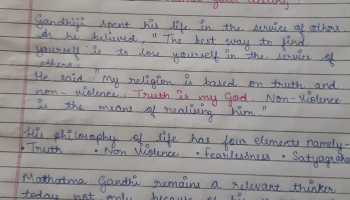 Gandhiji spent his life in the service of others
as he believed, "The best way to find
yourself is to lose yourself in the service of
others.
He said "My religion is based on truth and
non-violence. Truth is my God. Non-Violence
is the means of realising him."
His philosophy of life has four elements namely-
• Truth • Non Violence • Fearlessness • Satyagraha
Mahatma Gandhi remains a relevant thinker
today not only because of his